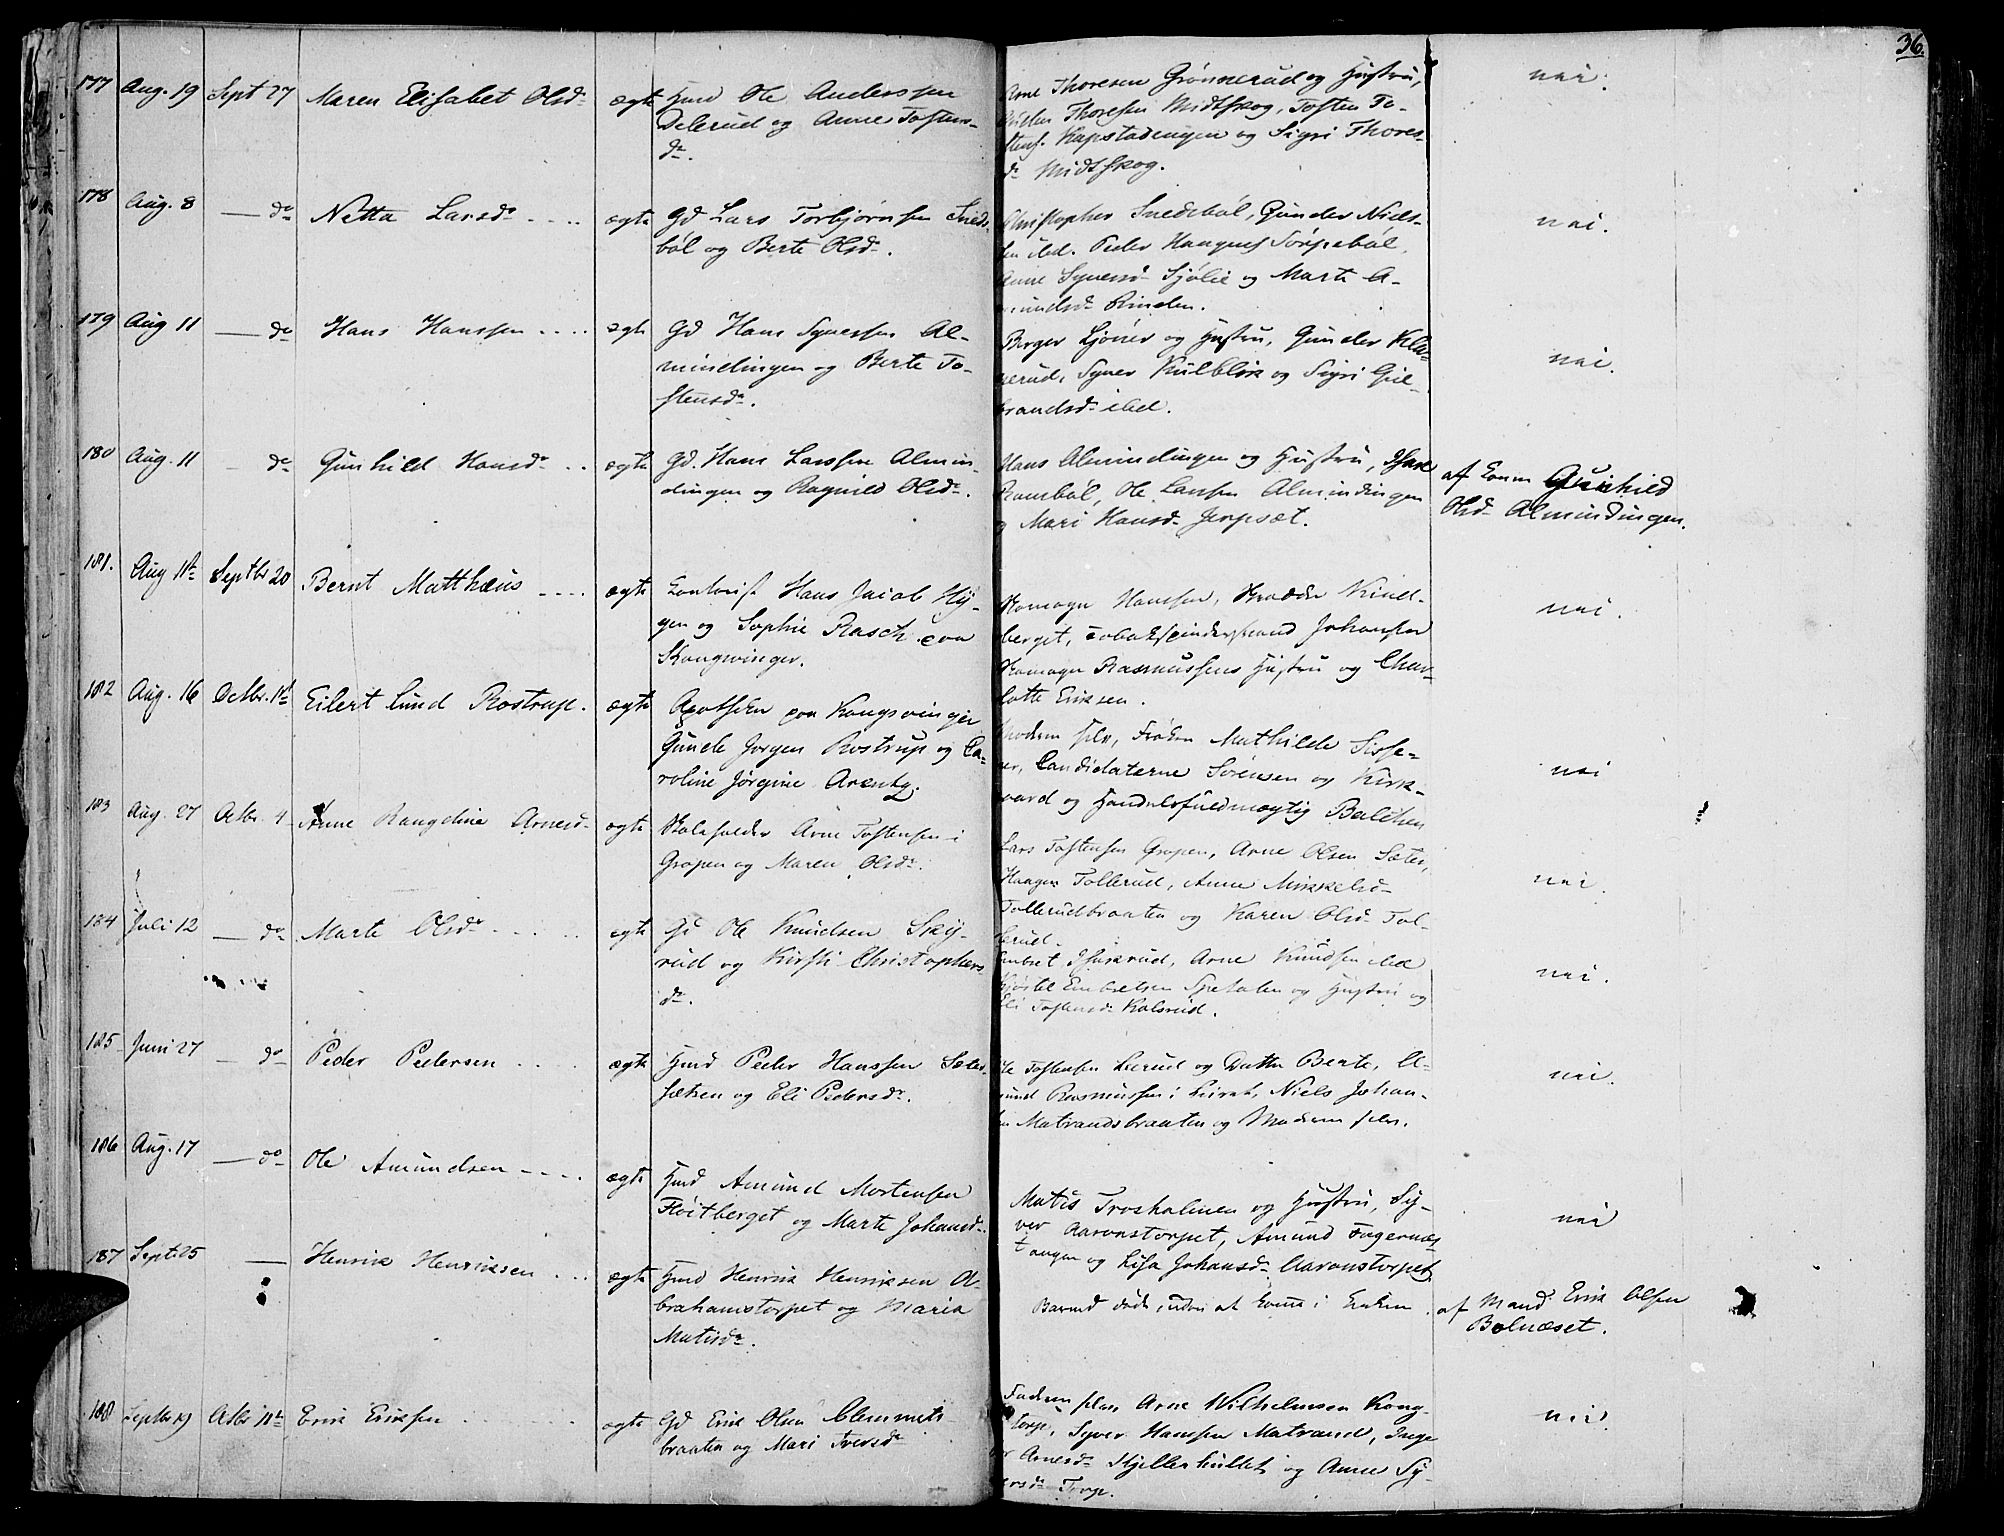 36.
177 Aug. 19 Sept 27 Maren Elisabet Olsd. ægte Hmd Ole Anderssen
Delerud og Anne Tostens-
dr.
Arne Thoresen Grønnerud og Hustru,
Thoresen Midtskog, Tosten To-
stens. Kapstadengen og Sigri Thores-
dr Midtskog.
nei.
178 Aug. 8 — do Netta Larsdr. ægte Gd Lars Torbjørnsen Sneds-
bøl og Berte Olsdr.
Christopher Snedsbøl, Gunder Niels-
sen ibd. Peder Haagens Sørpebøl,
Anne Syversdr Sjølie og Marte A-
mundsdr Rinden.
nei.
179 Aug 11 — do Hans Hanssen ægte Gd Hans Syverssen Al-
mindingen og Berte To-
stensdr.
Berger Sjøner og Hustru, Gunder Kla-
nerud, Syver Kulblik og Sigri Gul-
brandsdr ibd.
nei.
180 Aug. 11 — do Gunhild Hansdr ægte Gd. Hans Larssen Almin-
dingen og Ragnild Olsdr.
Hans Almindingen og Hustru,
Ramsbøl, Ole Larssen Almindingen
og Mari Hansdr Jerpset.
af Konen Gunhild
Olsdr Almindingen.
181. Aug 11te Septbr 20 Bernt Matthæus ægte Hans Jacob Hy-
gen og Sophie Rasch paa
Kongsvinger.
Hanssen, Kind-
berget, Tobakspinder Johansen
Rasmussens Hustru og Char-
lotte Eriksen.
nei.
182 Aug. 16 Octbr. 11te Eilert Lund Rostrup. ægte Apotheker paa Kongsvinger
Gunde Jørgen Rostrup og Ca-
roline Jørgine Arentz.
Moderen selv, Frøken Mathilde Sisse-
ner, Candidaterne Sørensen og Kirk-
gaard og Handelsfuldmægtig Balchen
nei
183 Aug. 27 Octbr. 4 Anne Rangdine Arnesd. ægte Skoleholder Arne Tostensen i
Gropen og Maren Olsdr.
Lars Tostensen Gropen, Arne Olsen Sæter,
Haagen Tollerud, Anne Mikkelsd
Tollerudbraaten og Karen Olsdr Tol-
lerud.
nei.
184 Juli 12 — do Marte Olsdr. ægte Gd Ole Knudsen Sky-
rud og Kirsti Christophers-
dr.
Embret Arne Knudsen ibd
Embretsen Spetalen og Hustru og
Eli Tostensdr Kalsrud.
nei.
185 Juni 27 — do Peder Pedersen ægte Hmd Peder Hanssen Sæter-
sætren og Eli Pedersdr.
Ole Tostensen Lierud og Datter Berte, A-
mund Rasmussen i Niels Johan-
sen Matrandsbraaten og Moderen selv.
nei.
186 Aug. 17 — do Ole Amundsen ægte Hmd Amund Mortensen
Fløitberget og Marte Johansdr.
Matis Troshalmen og Hustru, Sy-
ver Aaronstorpet, Amund Fagernæs-
tangen og Lisa Johansdr. Aaronstorpet
nei
187 Sept. 25 — Henrik Henriksen ægte Hmd Henrik Henriksen A-
brahamstorpet og Maria
Matisdr.
Barnet døde, uden at komme i Kirken.
af Mand Erik Olsen
Bolnæset.
188 Septbr 19 Octbr 11te Erik Eriksen ægte Gd Erik Olsen Clemmets-
braaten og Mari Iversdr
Faderen selv, Arne Wilhelmsen Kongs-
torp, Syver Hanssen Matrand, Inge-
bor Arnesdr Skjellerhullet og Anne Sy-
versdr Torp.
nei.